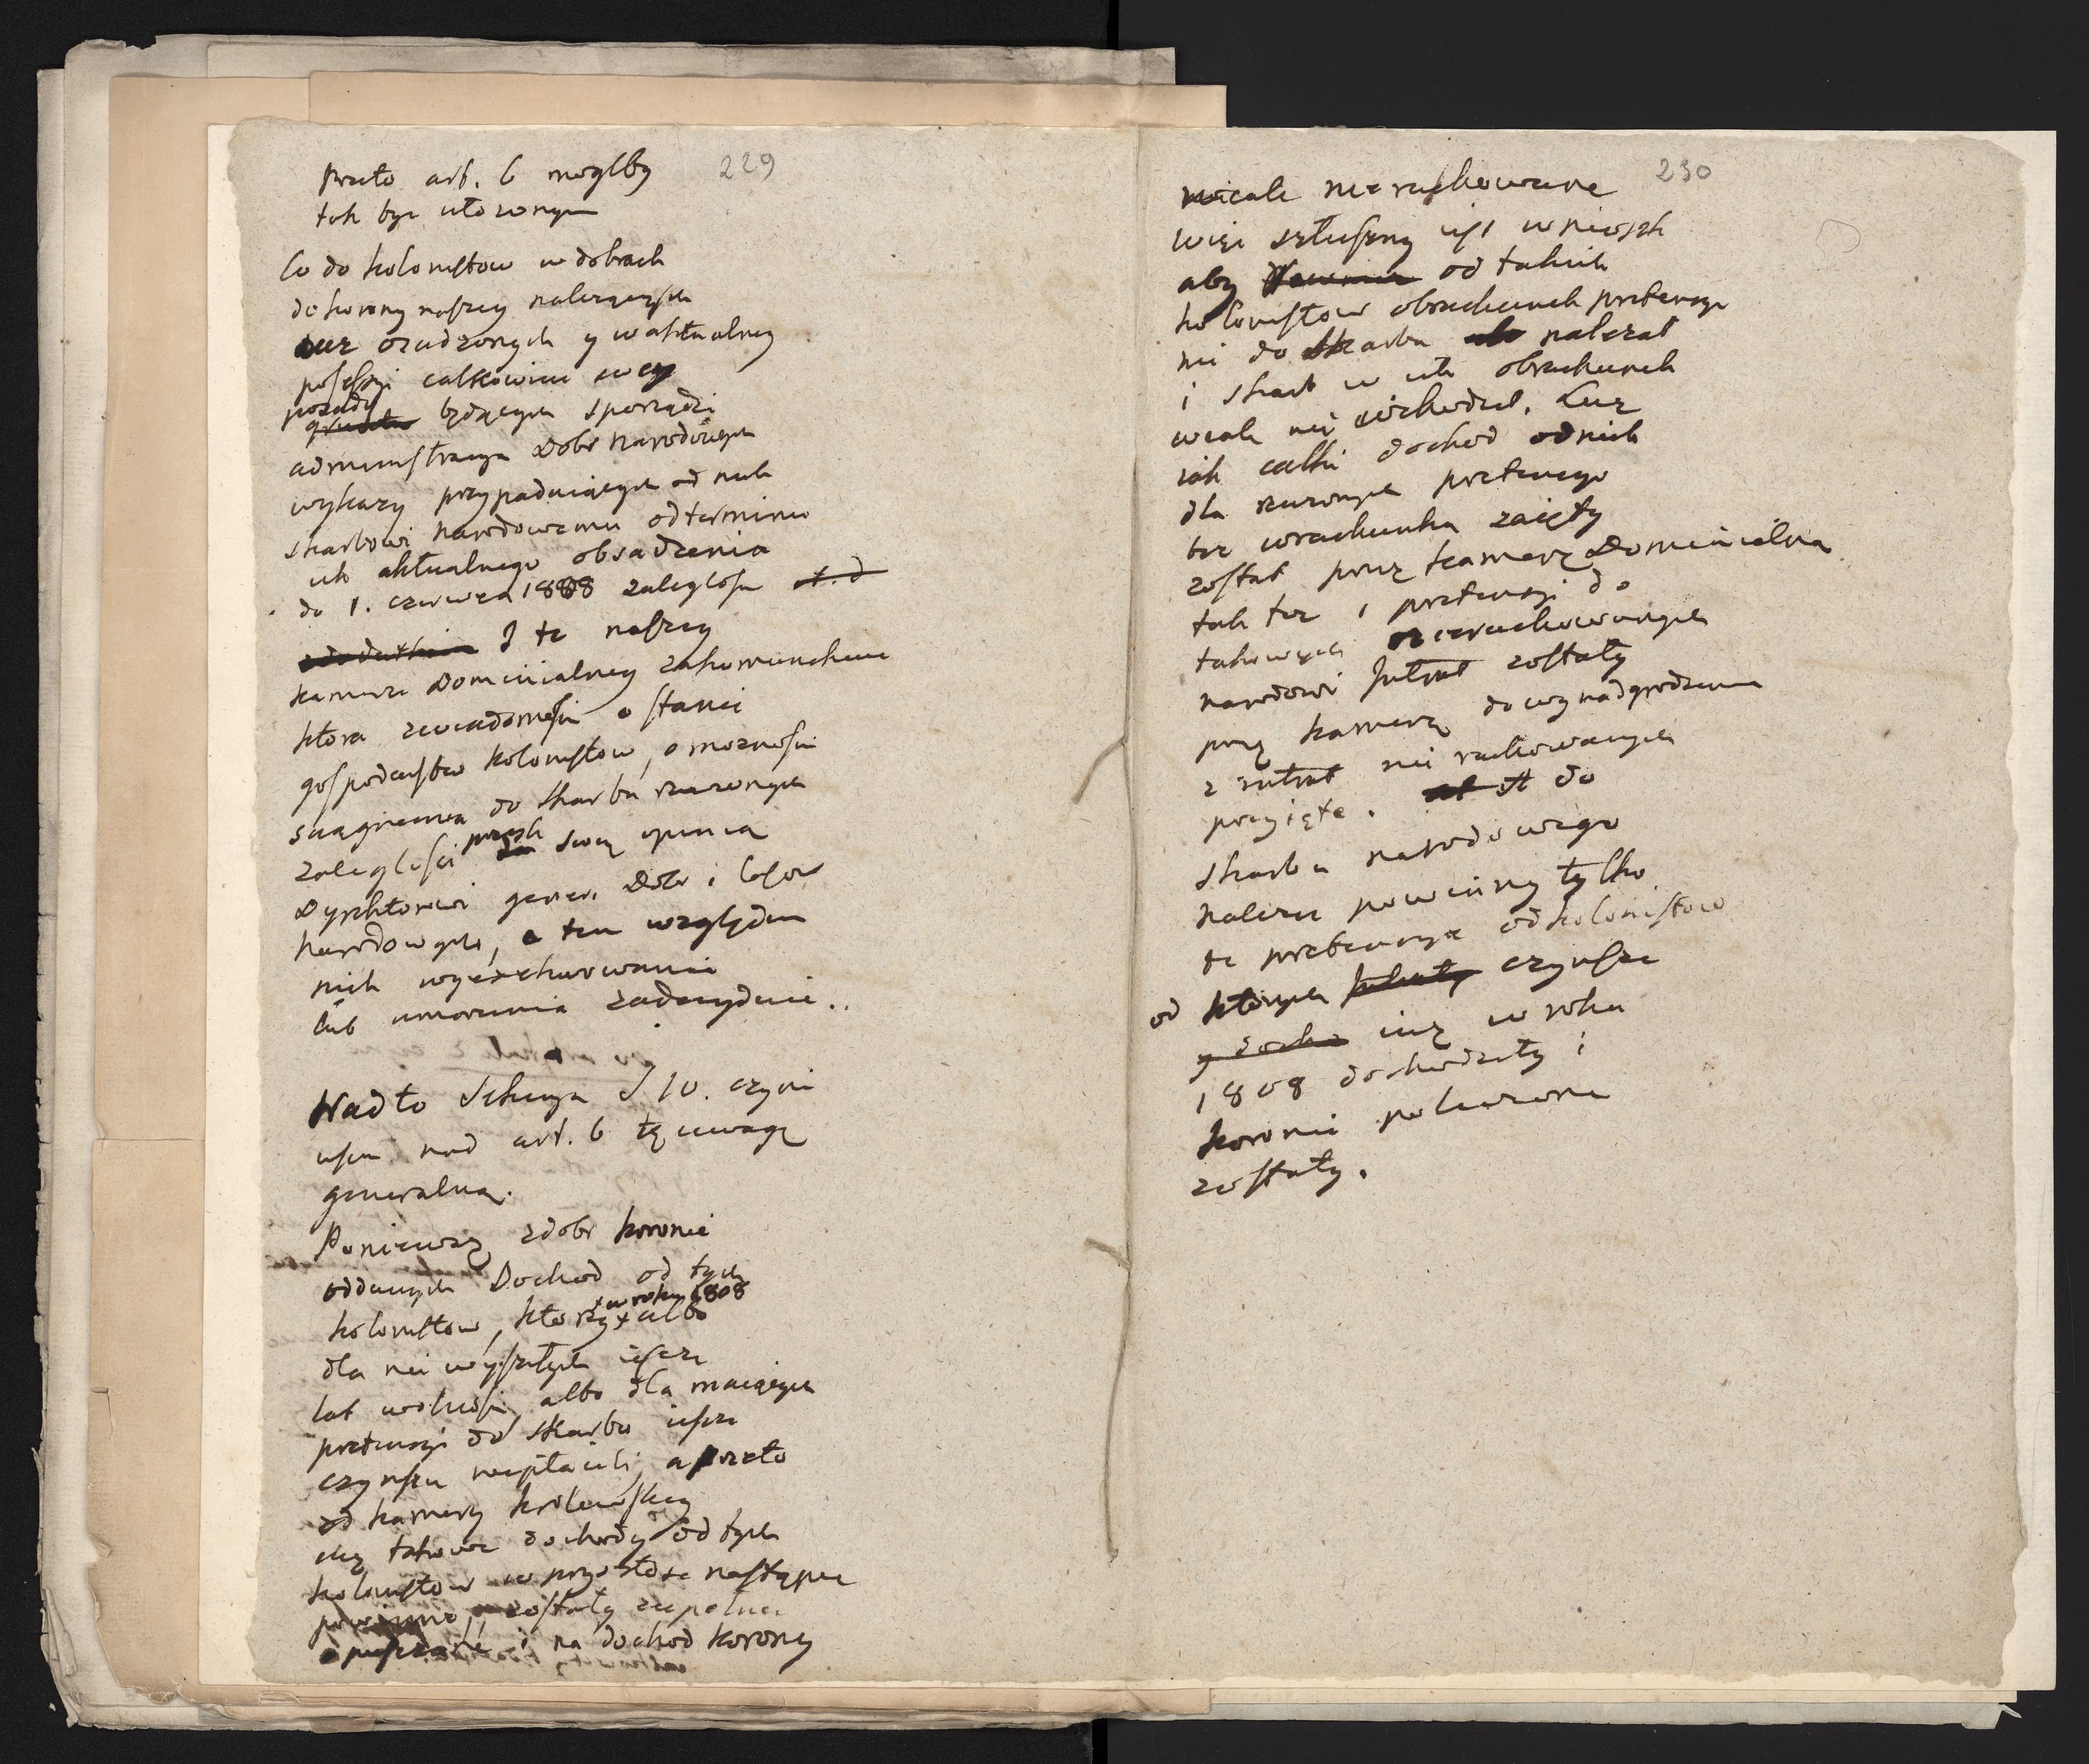 229
Przeto art. 6 mogłby
tak być ułozonym
Co do kolonistow w dobrach
do korony naszey nalezących
iuz osadzonych y w aktualney
posessyi całkowicie swey
posady
gruntu będących sporządzi
administracya Dobr Narodowych
wykazy przypadaiących od nich
skarbowi Narodowemu od terminu
ich aktualnego obsadzenia
do 1. czerwca 1808 zaległosci
I te naszey
kamerze Dominialney zakomunikuie
ktora zwiadomosci o stanie
gospodarstw kolonistow, o moznosci
sciągnienia do skarbu rzeczonych
zaległosci prześle swą opinią
Dyrektorowi gener. Dobr i lasow
Narodowych, a ten względem
nich wyexekwowania
lub umorzenia zadecyduie..
Nadto Sekcya S 10. czyni
ieszcze nad art. 6 tę uwagę
generalną.
Poniewaz z dobr koronie
oddanych Dochod od tych
w roku 1808
kolonistow, ktorzy x albo
dla nie wyszłych ieszcze
lat wolnosci, albo dla maiących
pretensyi do skarbu ieszcze
czynszu niepłacili, a przeto
od kamery krolewskiey
takowe dochody od tych
kolonistow w przyszłosc nastąpic
powinne, zostały zupełnie
opuszczone i na dochod korony
230
wcale nie rachowane
więc słuszny iest wniosek
aby od takich
kolonistow obrachunek pretensyi
nie do skarbu nalezał
i skarb w ich obrachunek
wcale nie wchodził. Lecz
iak całki dochod od nich
dla rzeczonych pretensyi
bez wrachunku zaięty
został przez kamerę Dominialną
tak tez i pretensye do
takowych nierachowanych
narodowi Intrat zostały
przez kamerę do wynadgrodzenia
z intrat nie rachowanych
przyięte. do
skarbu narodowego
nalezec powinny tylko
te pretensye od kolonistow
od ktorych czynsze
iuz w roku
1808 dochodziły i
koronie policzone
zostały.